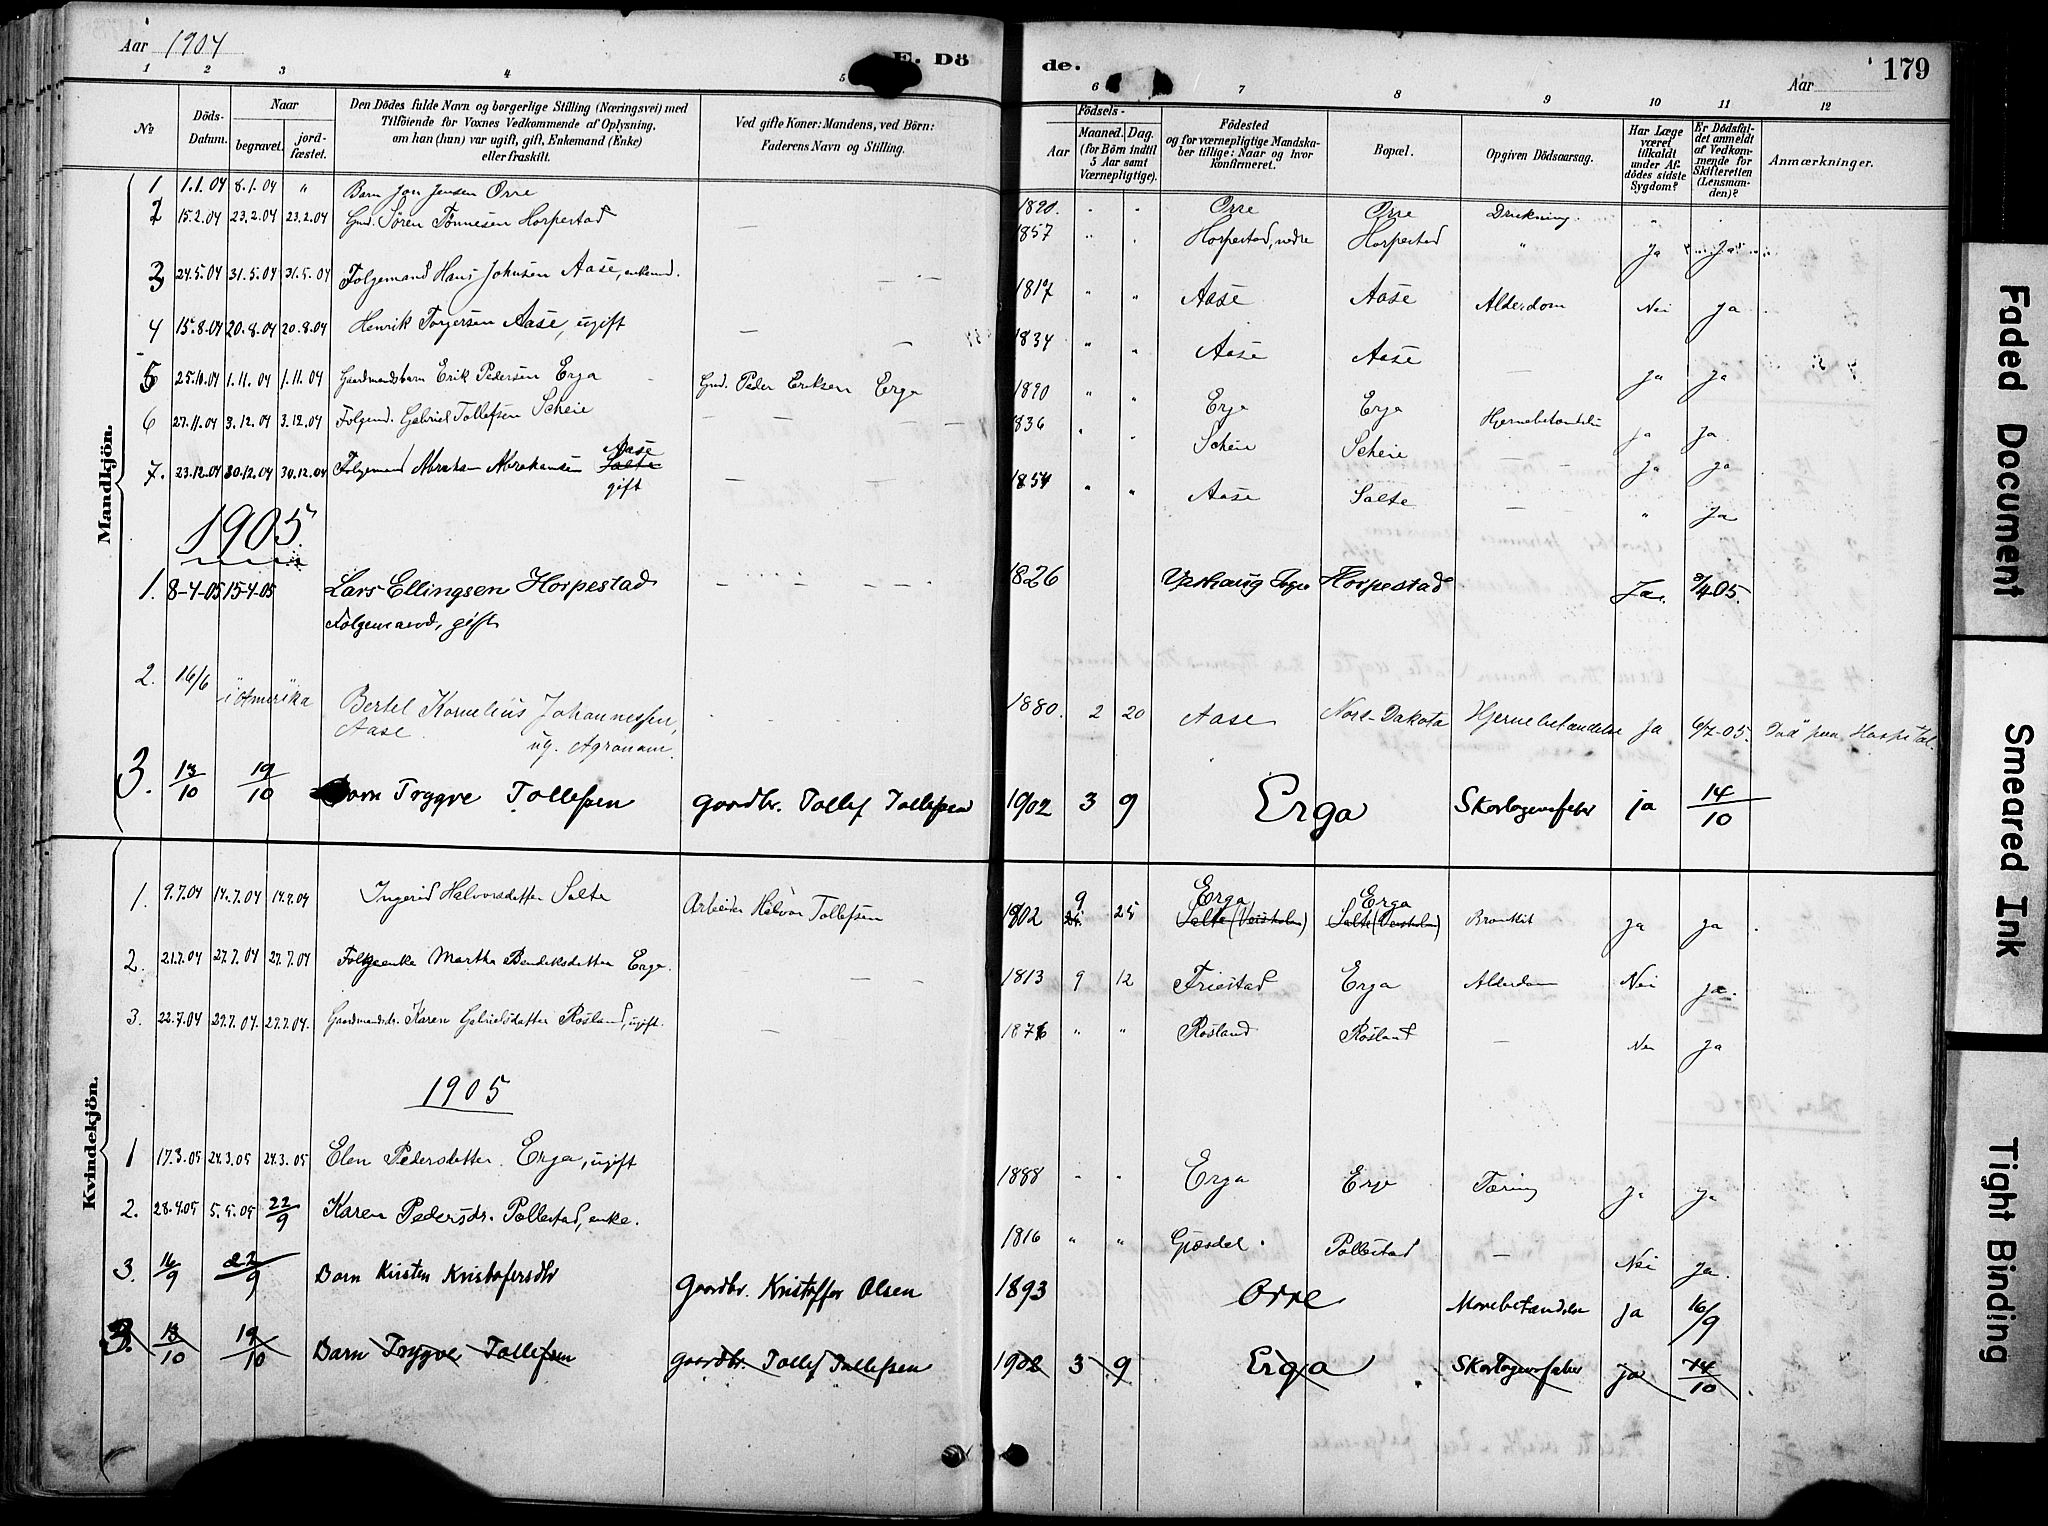 Aar 1904
E. Dö de.
Aar
179
1 2 3 4 5 6 7 8 9 10 11 12
№
Döds-Datum.
Naar
begravet.
jord-fæstet.
Den Dödes fulde Navn og borgerlige Stilling (Næringsvei) med
Tilföiende for Voxnes Vedkommende af Oplysning,
om han (hun) var ugift, gift, Enkemand (Enke)
eller fraskilt.
Ved gifte Koner: Mandens, ved Börn:
Faderens Navn og Stilling.
Födsels-
Aar
Maaned. Dag.
(for Börn indtil
5 Aar samt
Værnepligtige).
Födested
og for værnepligtige Mandska-
ber tillige: Naar og hvor
konfirmeret.
Bopæl.
Opgiven Dödsaarsag.
Har Læge
været
tilkaldt
under Af-
dödes sidste
Sygdom?
Er Dödsfal-
det anmeldt
af Vedkom-
mende for
Skifteretten
(Lensman-
den)?
Anmærkninger.
Mandkjön.
1 1.1.04 8.1.04 " Barn Jon Jensen Orre 1890. " " Orre Orre Drukning. "
2 15.2.04 23.2.04 23.2.04 Gmd. Sören Tönnesen Horpestad — 1857 " " Horpestad, nedre Horpestad " Ja Ja
3 24.5.04 31.5.04 31.5.04 Folgemand Hans Johnsen Aase, enkemd. — — 1817 " " Aase Aase Alderdom Nei Ja
4 15.8.04 20.8.04 20.8.04 Henrik Torgersen Aase, ugift — — 1834 " " Aase Aase — Ja Ja
5 25.10.04 1.11.04 1.11.04 Gaardmandsbarn Erik Pedersen Erga Gmd. Peder Eriksen Erga 1890 " " Erga Erga Hjernebetændelse ja Ja
6 27.11.04 3.12.04 3.12.04 Folgemd. Gabriel Tollefsen Scheie — — — 1836 " " Scheie Scheie — Ja Ja
7. 23.12.04 30.12.04 30.12.04 Folgemand Abraham Abrahamsen Salte Aase gift — — — 1854 " " Aase Salte — " Ja
1905.
1. 8-4-05 15-4-05 Lars Ellingsen Horpestad 1826 Varhaug Sogn Horpestad Ja. 9/4-05.
Folgemand, gift
2. 16/6 i Amerika Bertel Kornelius Johannessen, 1880. 2 20 Aase Nord-Dakota Hjernebetændelse Ja 6/7-05. Död paa Hospital.
Aase. ug. Agronom.
3. 13/10 19/10 Barn Trygve Tollefsen Gaardbr. Tollef Tollefsen 1902 3 9 Erga Skarlagensfeber ja 14/10
Kvindekjön.
1. 9.7.04 14.7.04 14.7.04 Ingerid Halvorsdatter Salte Arbeider Halvor Tollefsen 1902 9 25 Erga Salte (Veisholm) Erga Salte (Veisholm) Bronkit ja ja
2. 21.7.04 27.7.04 27.7.04 Folgeenke Martha Bendiksdatter Erga. — — 1813 9 12 Friestad Erga Alderdom Nei ja.
3. 22.7.04 27.7.04. 27.7.04. Gaardmandsdr. Karen Gabrielsdatter Rosland, ugift. — 1876 " " Rosland Rosland — Nei Ja
1905
1 17.3.05 24.3.05 24.3.05 Elen Pedersdatter Erga, ugift 1888 " " Erga Erga Tæring Ja Ja
2. 28.4.05 5.5.05 22/9 Karen Pedersdr. Pollestad, enke. 1816 " " Gjesdal Pollestad — Nei Ja.
3. 16/9 22/9 Barn Kirsten Kristofersdtr Gaardbr. Kristoffer Olsen 1893 Orre Mavebetændelse ja 16/9
3. 13/10 19/10 Barn Trygve Tollefsen Gaardbr. Tollef Tollefsen 1902 3 9. Erga Skarlagensfeber ja 14/10
Faded Document
Smeared Ink
Tight Binding